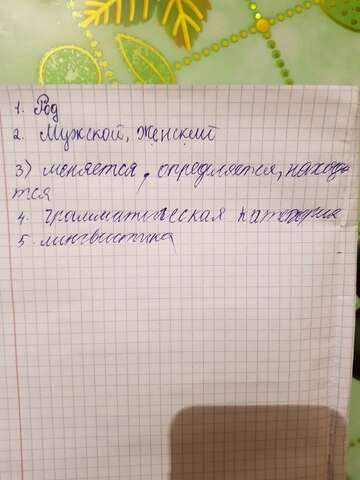 1. Род
2. Мужской, женский
3) меняется, определяется, находя
тся
4. грамматическая категория
5 лингвистика